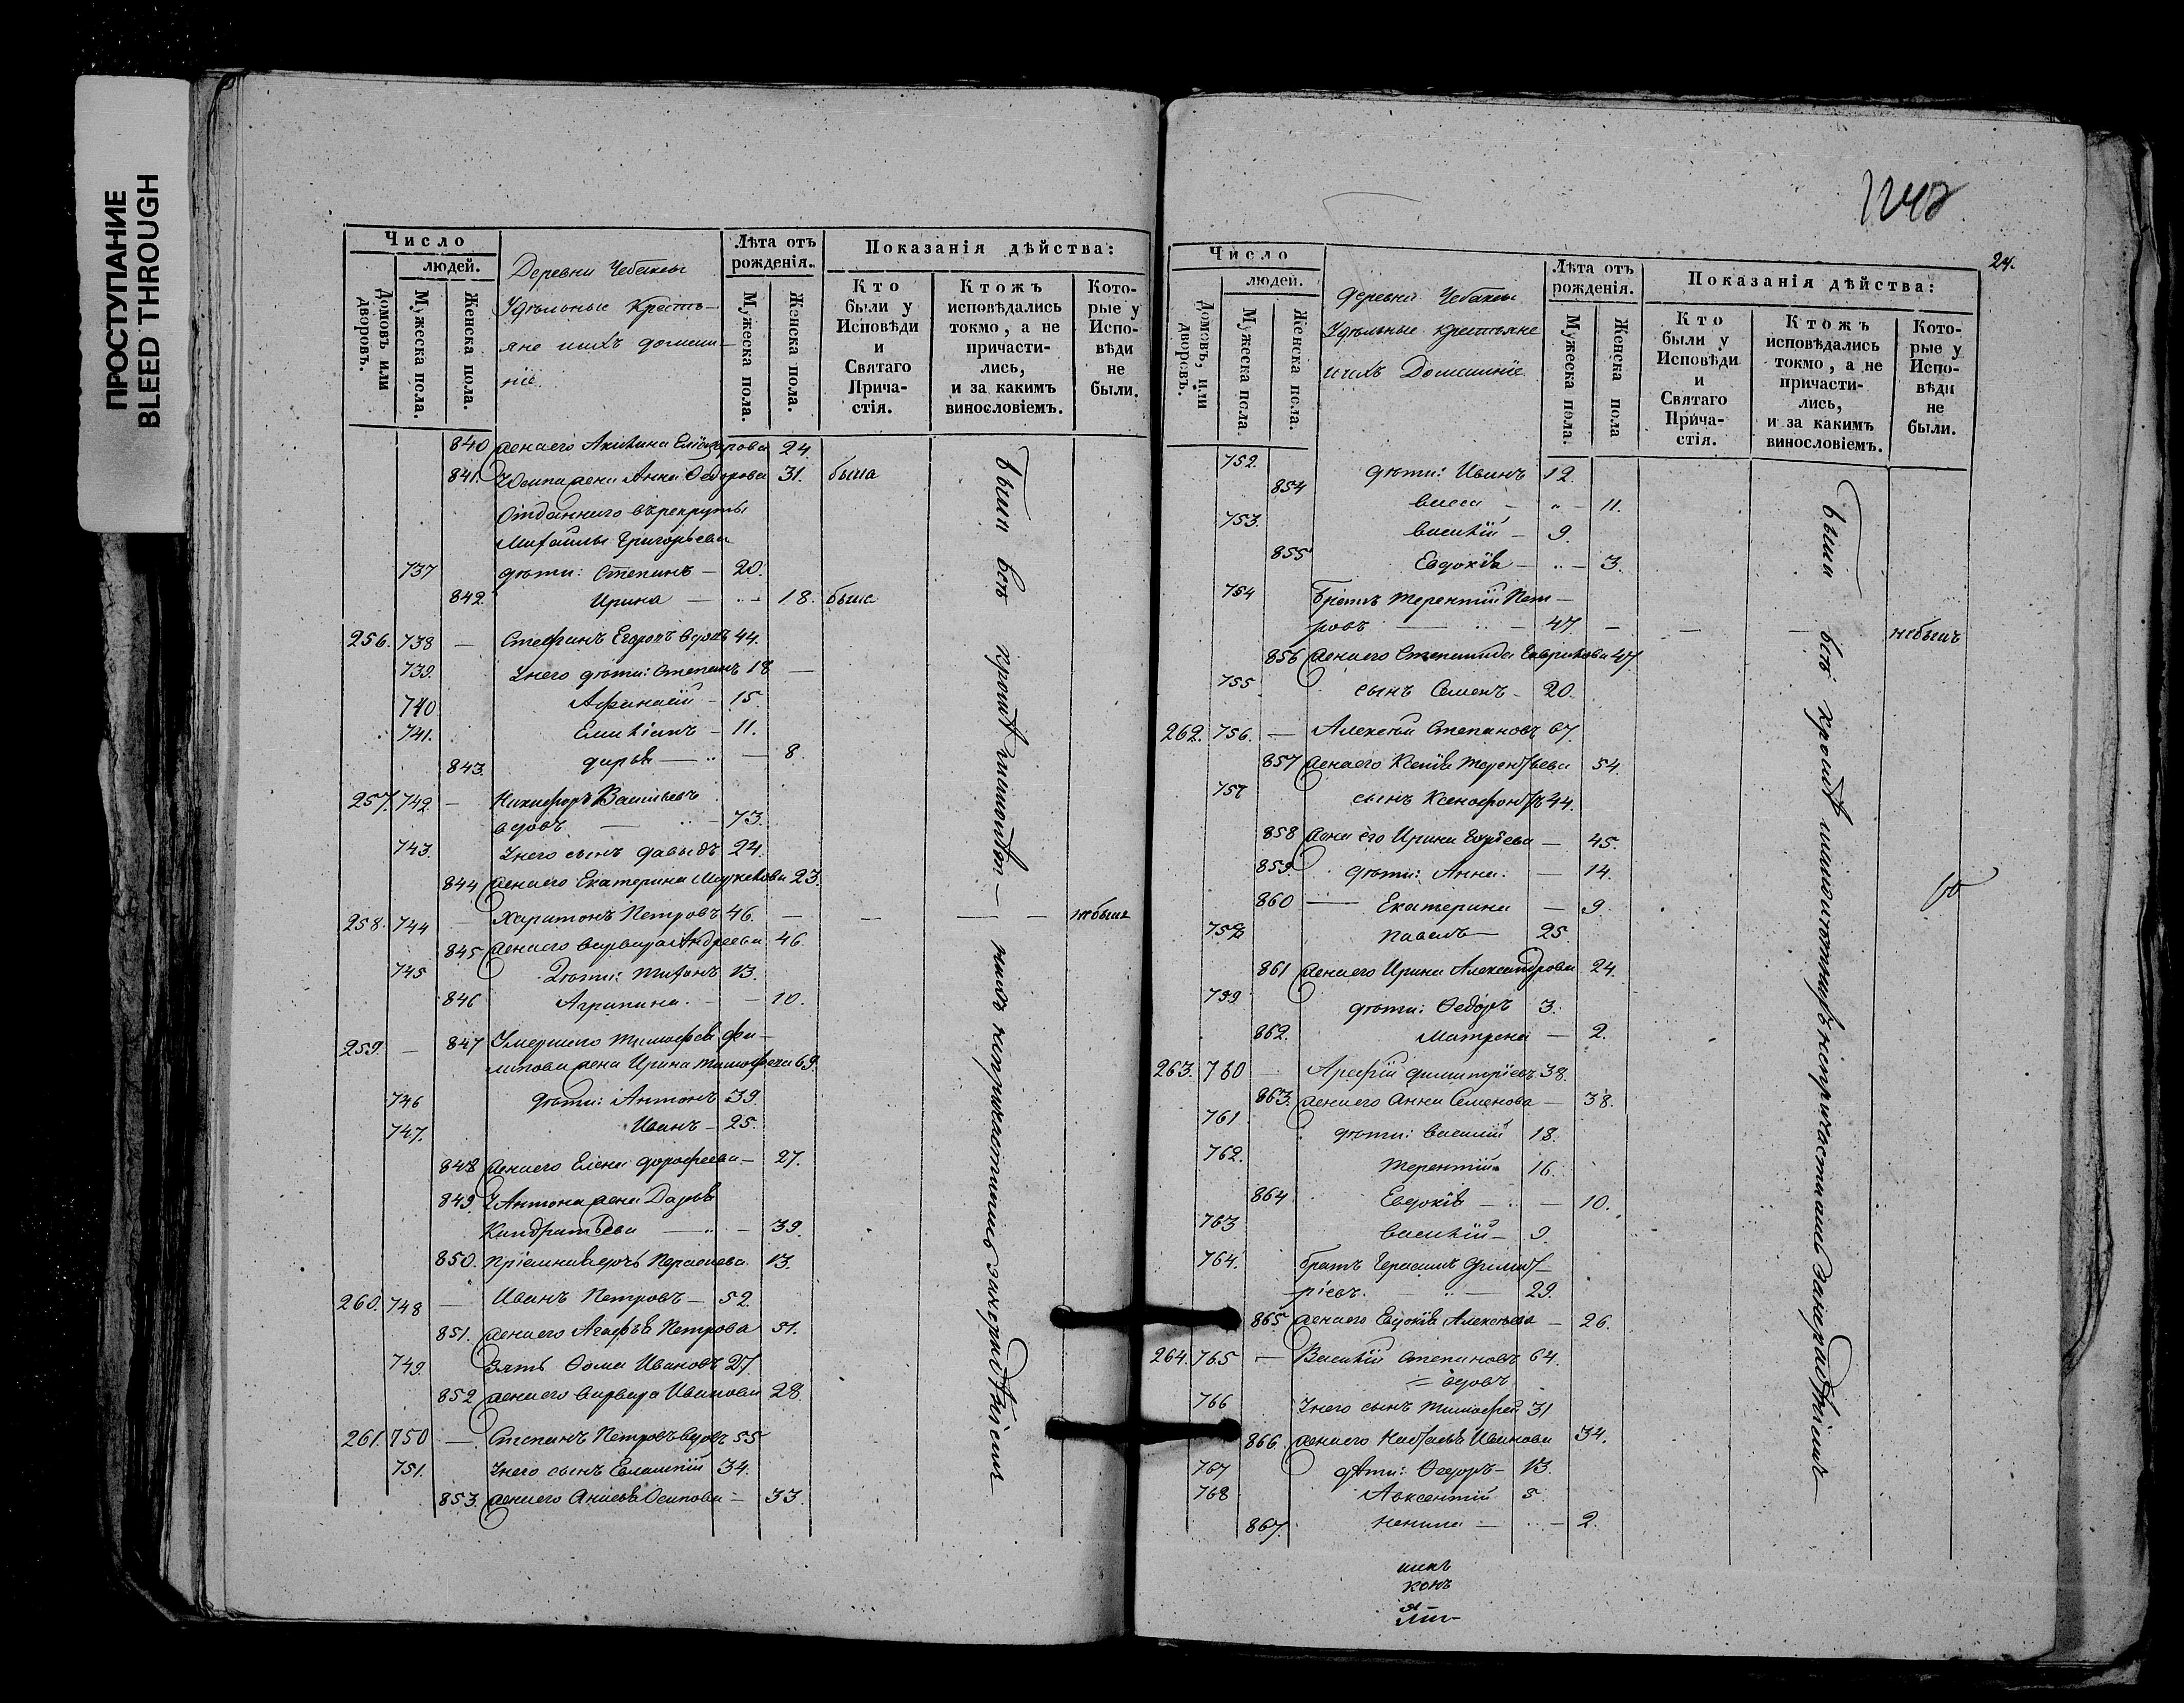 ПРОСТУПАНИЕ
BLEED THROUGH
Число
людей.
Домовъ или дворовъ.
Мужеска пола.
Женска пола.
Деревни Чебаксы
Удѣльные Кресть-
яне ихъ домаш-
ніе
Лѣта отъ рожденія.
Мужеска пола.
Женска пола.
Показанія дѣйства:
Кто были у Исповѣди и Святаго Прича-стія.
Ктожъ исповѣдались токмо, а не причасти-лись, и за какимъ винословіемъ.
Кото-рые у Испо-вѣди не были.
840 жена его Акилина Еліазарова 24.
841. жена Анна Ѳедорова 31. была
Отданнаго въ рекруты
Михайлы Григорьева
737 дѣти: Степанъ — 20.
842. Ирина — 18. была
256. 738 — Стефанъ Егоровъ вдовъ 44.
739. У него дѣти: Степанъ 18 —
740 Афанасій — 15.
741. Емиліанъ — 11.
843. Дарья — 8.
257. 742 — Никифоръ Васильевъ
вдовъ — 73.
743. У него сынъ Давыдъ 24.
844 жена его Екатерина 23.
258. 744 — Харитонъ Петровъ 46. — — — — не былъ
845 жена его Варвара Андреева 46.
745 Дѣти: 13.
846 Агрипина. — 10.
259. — 847 Умершаго Тимофея Фи-
липова жена Ирина Тимофеева 69.
746 дѣти: Антонъ 39.
747. Иванъ — 25.
848 жена его Елена Дорофеева — 27.
849. У Антона жена Дарья
Кандратьева — 39.
850. Пріемная дочь 13.
260. 748 — Иванъ Петровъ — 52.
851. жена его Агафья Петрова 51.
749. Зять Ѳома Ивановъ 27.
852 жена его Варвара Иванова 28
261. 750 — Степанъ Петровъ вдовъ 55
751. У него сынъ Евлампій 34.
853. жена его Анисья Осипова — 33.
Были всѣ кромѣ
1242
24.
Число
людей.
Домовъ, или дворовъ.
Мужеска пола.
Женска пола.
Деревни Чебаксы
Удѣльные крестьяне
и ихъ Домашніе
Лѣта отъ рожденія.
Мужеска пола.
Женска пола
Показанія дѣйства:
Кто были у Исповѣди и Святаго Прича-стія.
Ктожъ исповѣдались токмо, а не причасти-лись, и за какимъ винословіемъ.
Кото-рые у Испо-вѣди не были.
752. дѣти: Иванъ 12.
854 Васса — „ — 11.
753. Василій — 9.
855 Евдокія — „ — 3.
754 братъ Терентій Пет-
ровъ — 47 — — — не былъ
856 жена его Степанида Гаврилова 47
755 сынъ Семенъ — 20.
262. 756. — Алексѣй Степановъ 67.
857 жена его Ксенія Терентьева 54.
757 сынъ Ксенофонтъ 44.
858 жена его Ирина — 45.
859 дѣти: Анна. — 14.
860 — Екатерина — 9.
758 Павелъ — 25
861 жена его Ирина Александрова 24.
759 дѣти: Ѳедоръ 3.
862. Матрена — 2.
263. 760 — Арефій Димитріевъ 38.
863. жена его Анна Семенова — 38.
761 дѣти: Василій 18.
762. Терентій 16.
864 Евдокія — „ — 10.
763 Василій — 9.
764. братъ Герасимъ Димит-
ріевъ. — 29.
865 жена его Евдокія Алексѣева — 26.
264. 765 — Василій Степановъ 64.
= вдовъ
766 У него сынъ Тимофей 31
866. жена его Наталья Иванова 34.
767 дѣти: Ѳедоръ — 13.
768 Авксентій 5.
867. Ненила — „ — 2.
Были всѣ кромѣ